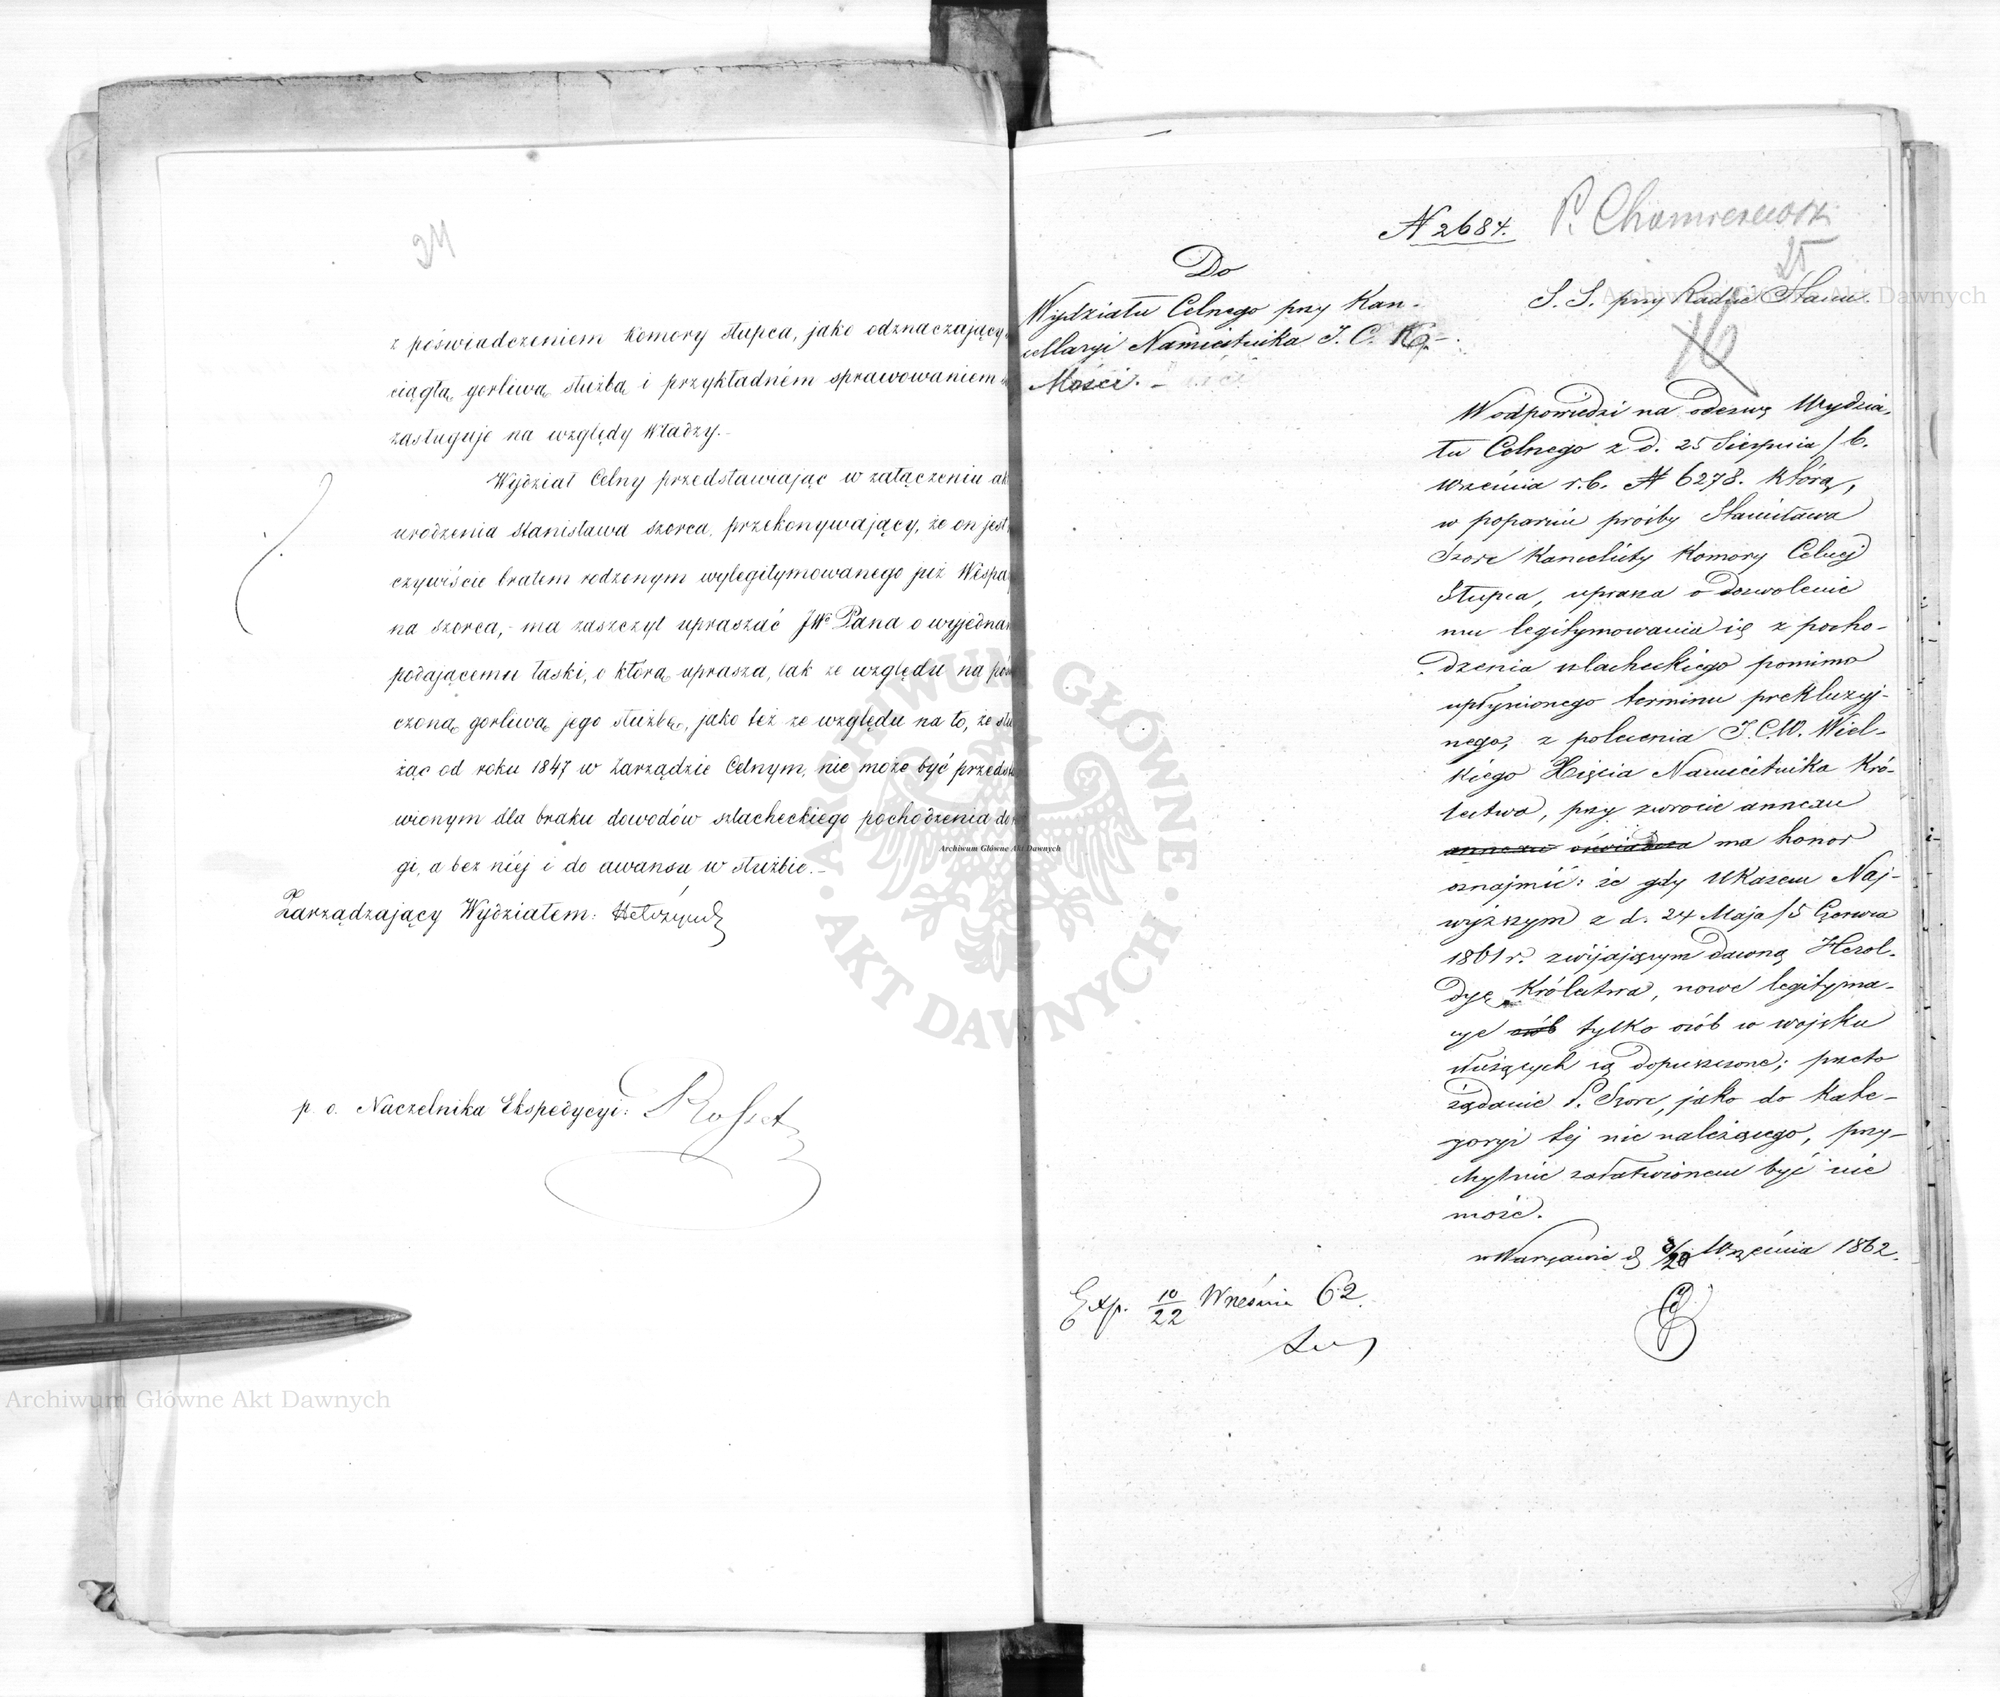 24
z poświadczeniem Komory Słupca, jako odznaczający
ciągłą, gorliwą służbą i przykładném sprawowaniem
zasługuje na względy Władzy.-
Wydział Celny przedstawiając w załączeniu ak
urodzenia Stanisława Szorca, przekonywający, że on jest
czywiście bratem rodzonym wylegitymowanego już Wespa
na Szorca,- ma zaszczyt upraszać JWo Pana o wyjedna
podającemu łaski, o którą uprasza, tak ze względu na
czoną gorliwą jego służbę, jako też ze względu na to, że słu
żąc od roku 1847 w Zarządzie Celnym, nie może być przedsta
wionym dla braku dowodów szlacheckiego pochodzenia do
gi, a bez niéj i do awansu w służbie.-
Zarządzający Wydziałem:
p. o. Naczelnika Ekspedycyi:
N 2684.
P.
25
Do
Wydziału Celnego przy Kan-
cellaryi Namiestnika J. C. K.
Mości.-
S. S. przy Radzie Stanu.
W odpowiedzi na odezwę Wydzia-
łu Celnego z d. 25 Sierpnia / 6.
Września r.b. N 6278. którą,
w poparciu prośby Stanisława
Szorc Kancelisty Komory Celnej
Słupca, uprasza o dozwolenie
mu legitymowania się z pocho-
dzenia szlacheckiego pomimo
upłynionego terminu prekluzyj-
nego, z polecenia J.C.W. Wiel-
kiego Xięcia Namiestnika Kró-
lestwa, przy zwrocie annexu
annexu oświadcza ma honor
oznajmić: że gdy Ukazem Naj-
wyższym z d. 24 Maja / 5 Czerwca
1861 r. zwijającym dawną Herol-
dyę Królestwa, nowe legityma-
cye osób tylko osób w wojsku
służących są dopuszczone; przeto
żądanie P. Szorc, jako do kate-
goryi tej nie należącego, przy-
chylnie załatwionem być nie
może.
w Warszawie d 8/20 Września 1862.
Exp. 10/22 Września 62.
Archiwum Główne Akt Dawnych
Archiwum Główne Akt Dawnych
Archiwum Główne Akt Dawnych
ARCHIWUM GŁÓWNE · AKT DAWNYCH ·